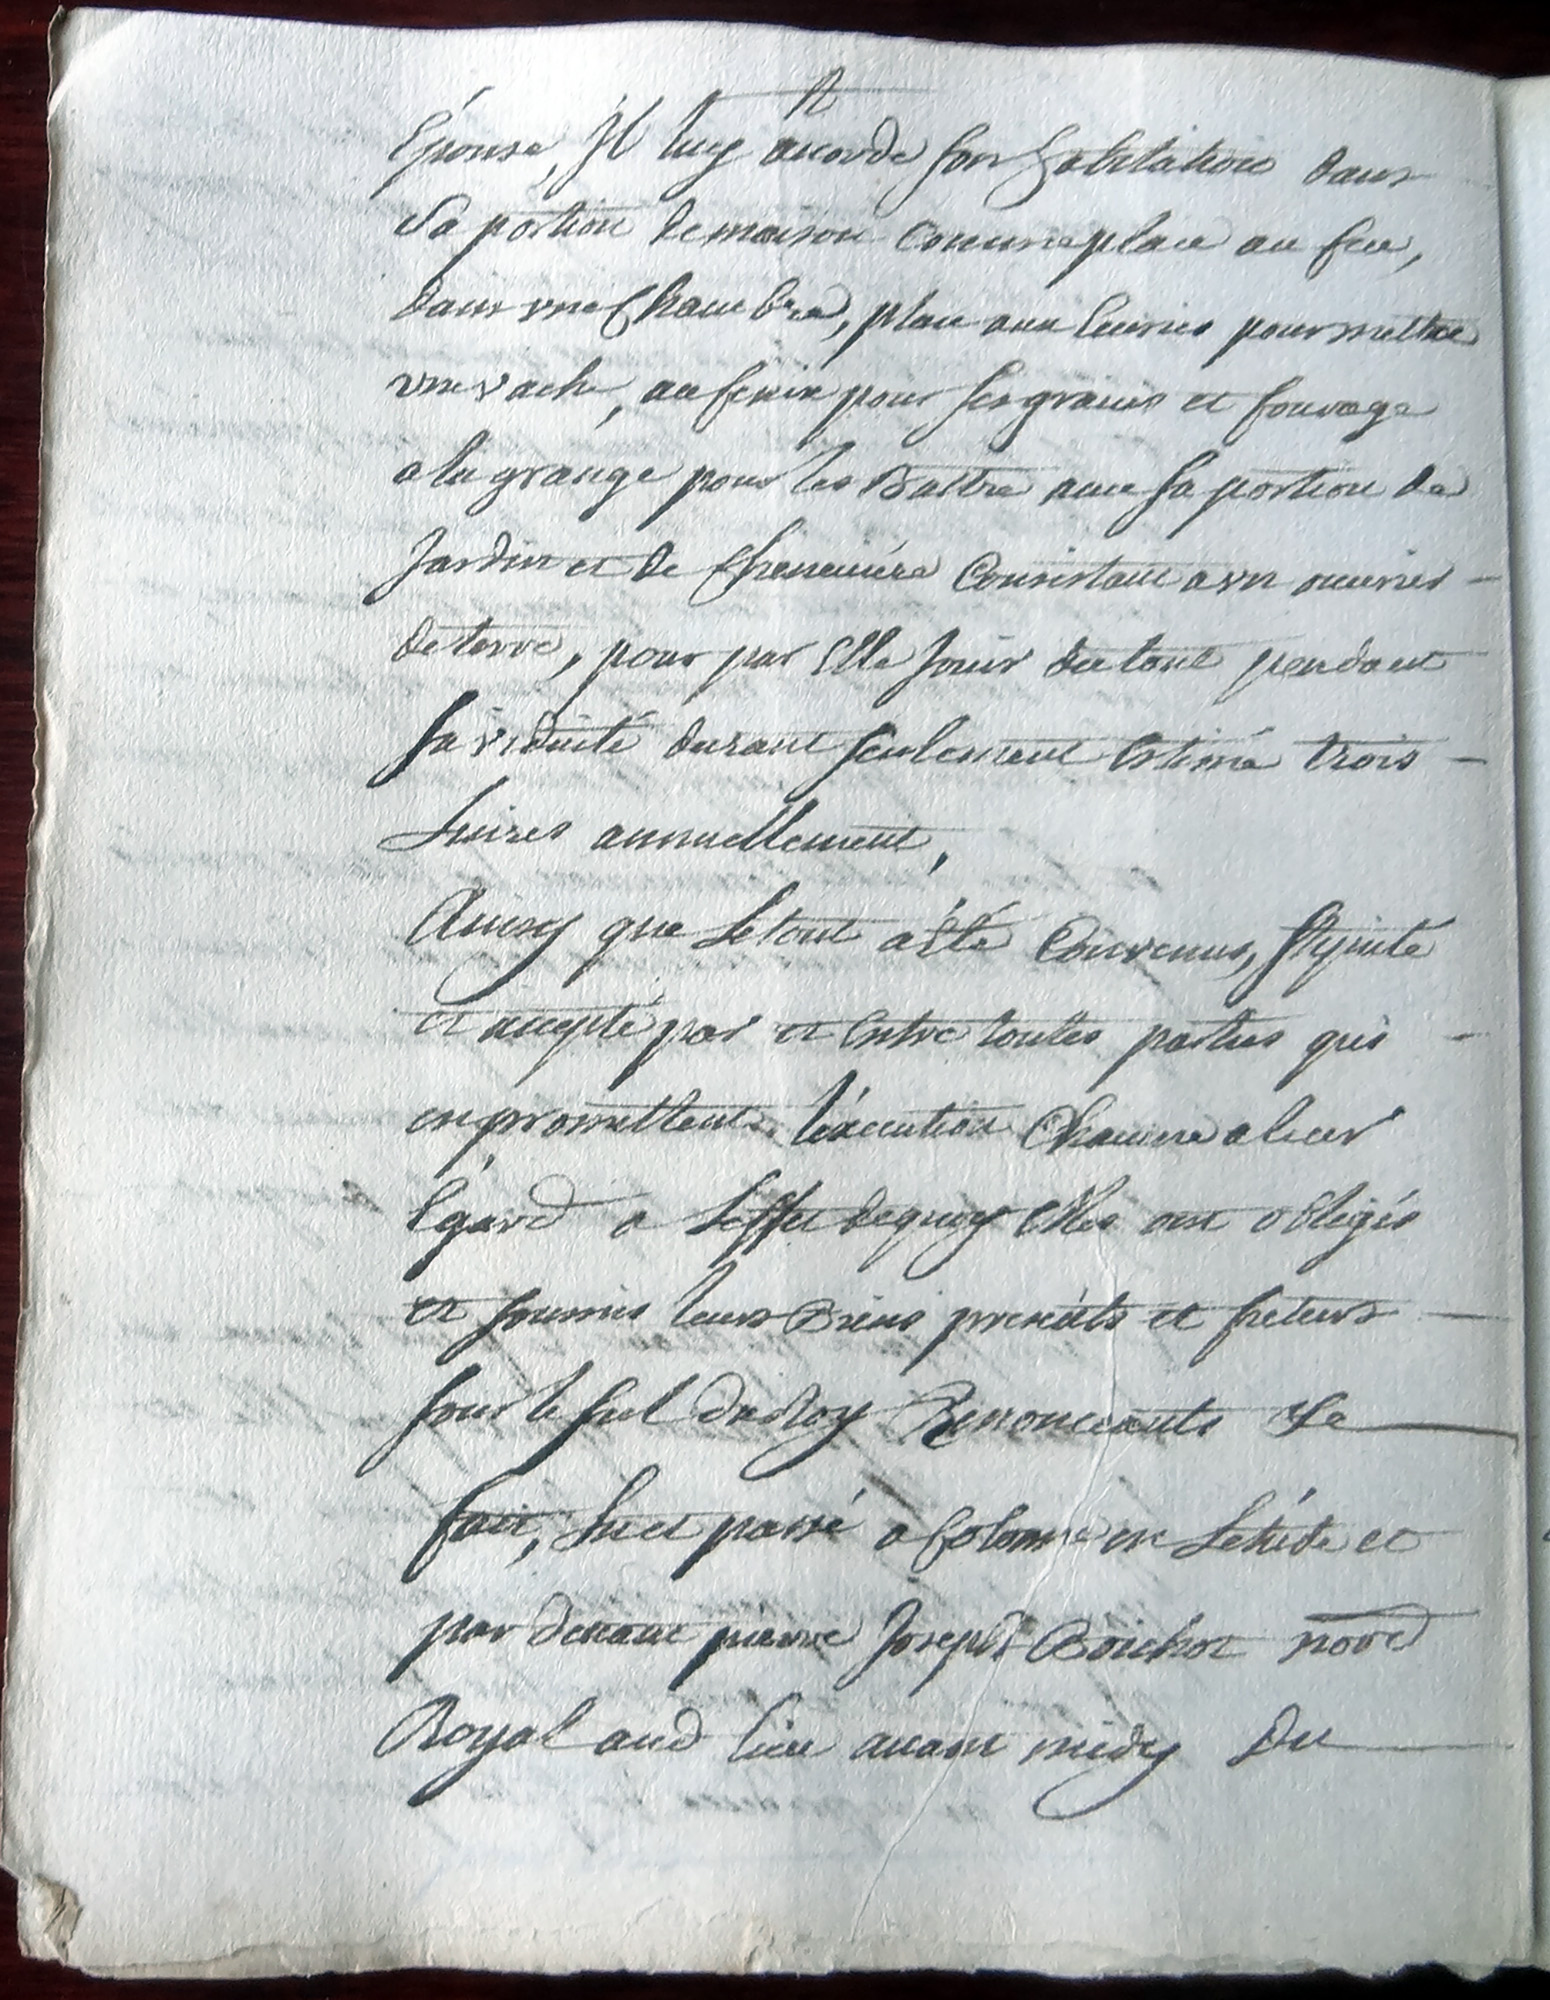 Epouse, Il luy acorde son habitation dans
Sa portion de maison Comme place au feu,
dans vne Chambre, place aux Ecuries pour mettre
vne vache, au fenix pour ses graines et fourage
a la grange pour les Battre avec sa portion de
Jardin et de Cheneviére Consistant a vn ouvrier
de terre, pour par Elle Jouir du tout pendant
sa viduité durant seulement Estimé trois
Livres annuellement,
Ainsy que Le tout a été Convenus, stipulé
et accepté par et Entre toutes parties qui
en promettent l'éxecution Chacune a leur
Egard a L'effet de quoy Elles ont obligés
et soumis leurs Biens presents et futurs
sous le scel du Roy Renonceants &a
fait, Lu et passé a Colonne en L'etúde et
par devant pierre Joseph Boichot notre
Royal aud lieu avant midy Du